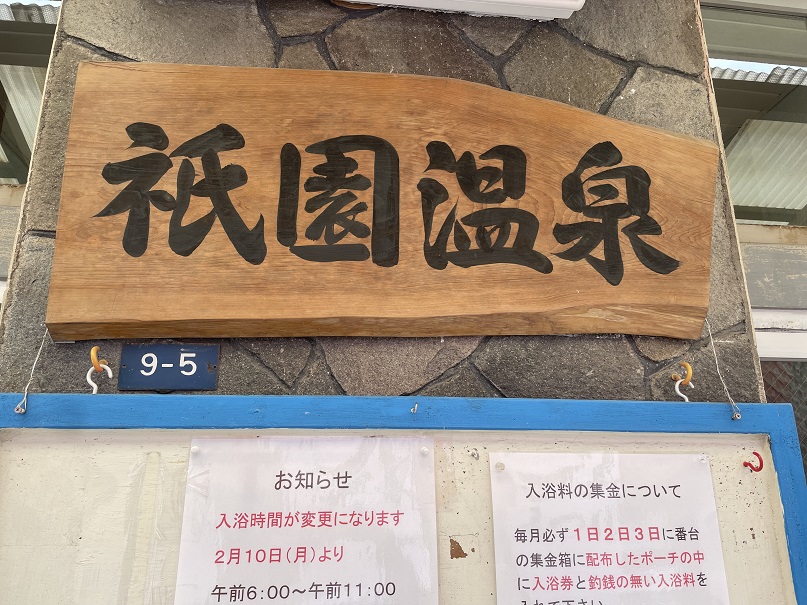 祇園温泉
9-5
お知らせ
入浴時間が変更になります
2月10日(月)より
午前6:00～午前11:00
入浴料の集金について
毎月必ず1日2日3日に番台
の集金箱に配布したポーチの中
に入浴券と釣銭の無い入浴料を
入れて下さい